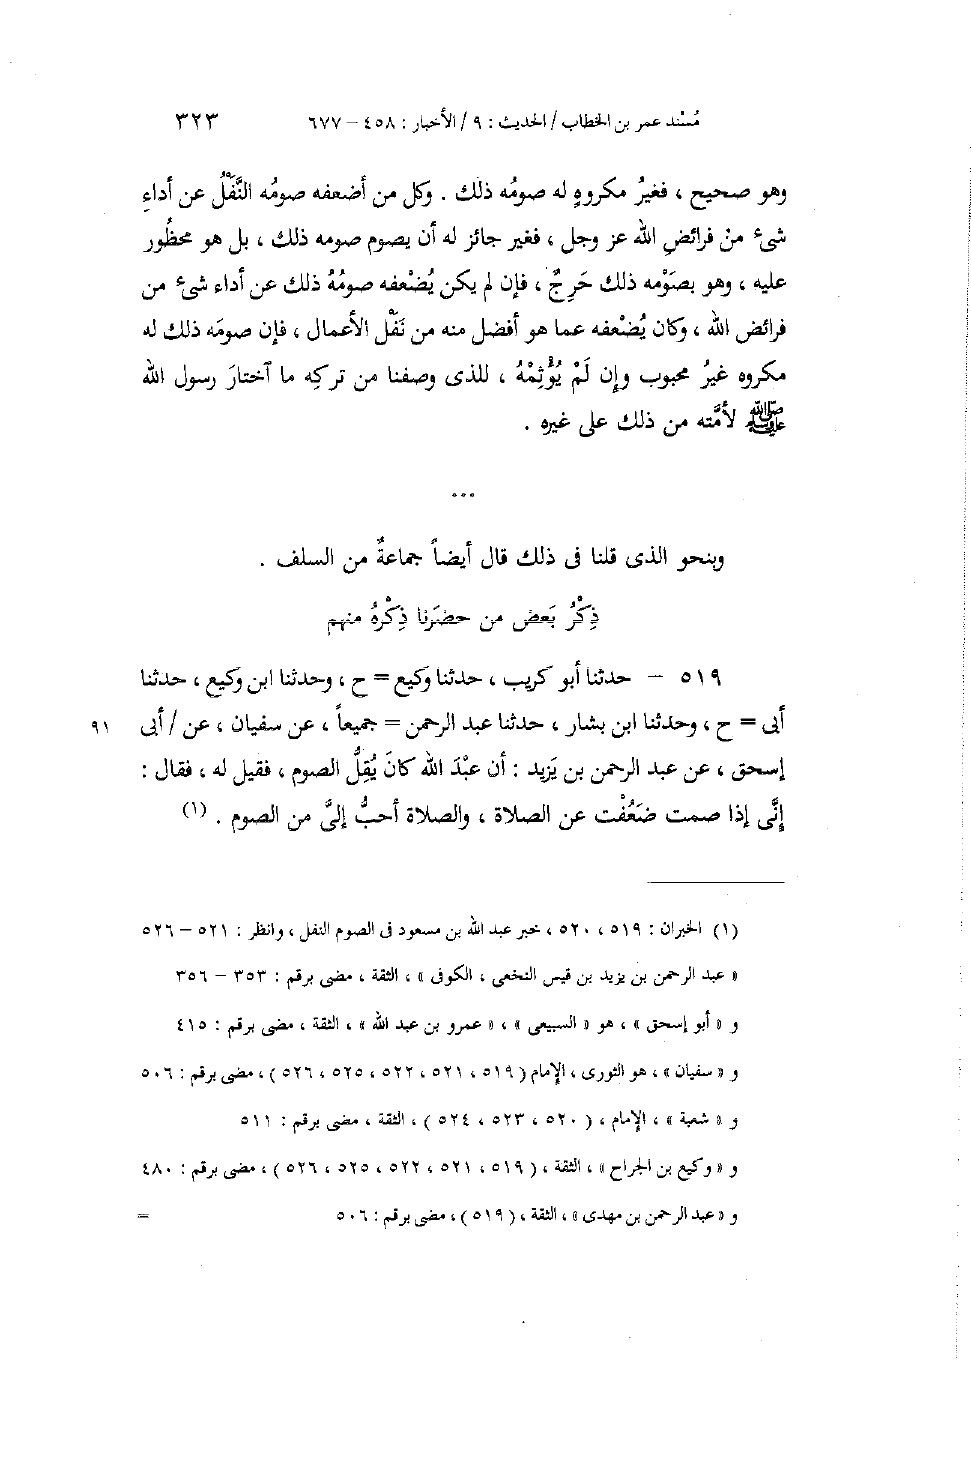 مُسْند عمر بن الخطاب / الحديث : ٩ / الأخبار : ٤٥٨ – ٦٧٧ ٣٢٣
وهو صحيح ، فغيرُ مكروهٍ له صومُه ذلك . وكل من أضعفه صومُه النَّفْلُ عن أداءِ
شىءٍ منْ فرائضِ الله عز وجل ، فغير جائز له أن يصوم صومه ذلك ، بل هو محظُور
عليه ، وهو بصَوْمه ذلك حَرِجٌ ، فإن لم يكن يُضْعفه صومُهُ ذلك عن أداء شىءٍ من
فرائض الله ، وكان يُضْعفه عما هو أفضل منه من نَفْل الأعمال ، فإن صومَه ذلك له
مكروه غيرُ محبوب وإن لَمْ يُؤْثِمْهُ ، للذى وصفنا من تركِه ما اختارَ رسول الله
ﷺ لأمَّته من ذلك على غيره .
***
وبنحو الذى قلنا فى ذلك قال أيضاً جماعةٌ من السلف .
ذِكْرُ بَعَض من حضرَنا ذِكْرهُ منهم
٥١٩ – حدثنا أبو كريب ، حدثنا وكيع = ح ، وحدثنا ابن وكيع ، حدثنا
أبى = ح ، وحدثنا ابن بشار ، حدثنا عبد الرحمن = جميعاً ، عن سفيان ، عن / أبى ٩١
إسحق ، عن عبد الرحمن بن يَزيد : أن عبْدَ الله كانَ يُقِلُّ الصوم ، فقيل له ، فقال :
إنَّى إذا صمت ضَعُفْت عن الصلاة ، والصلاة أحبُّ إلىَّ من الصوم . (١)
(١) الخبران : ٥١٩ ، ٥٢٠ ، خبر عبد الله بن مسعود فى الصوم النفل ، وانظر : ٥٢١ – ٥٢٦
« عبد الرحمن بن يزيد بن قيس النخعى ، الكوفى » ، الثقة ، مضى برقم : ٣٥٣ – ٣٥٦
و « أبو إسحق » ، هو « السبيعى » ، « عمرو بن عبد الله » ، الثقة ، مضى برقم : ٤١٥
و « سفيان » ، هو الثورى ، الإمام ( ٥١٩ ، ٥٢١ ، ٥٢٢ ، ٥٢٥ ، ٥٢٦ ) ، مضى برقم : ٥٠٦
و « شعبة » ، الإمام ، ( ٥٢٠ ، ٥٢٣ ، ٥٢٤ ) ، الثقة ، مضى برقم : ٥١١
و « وكيع بن الجراح » ، الثقة ، ( ٥١٩ ، ٥٢١ ، ٥٢٢ ، ٥٢٥ ، ٥٢٦ ) ، مضى برقم : ٤٨٠
و « عبد الرحمن بن مهدى » ، الثقة ، ( ٥١٩ ) ، مضى برقم : ٥٠٦ =